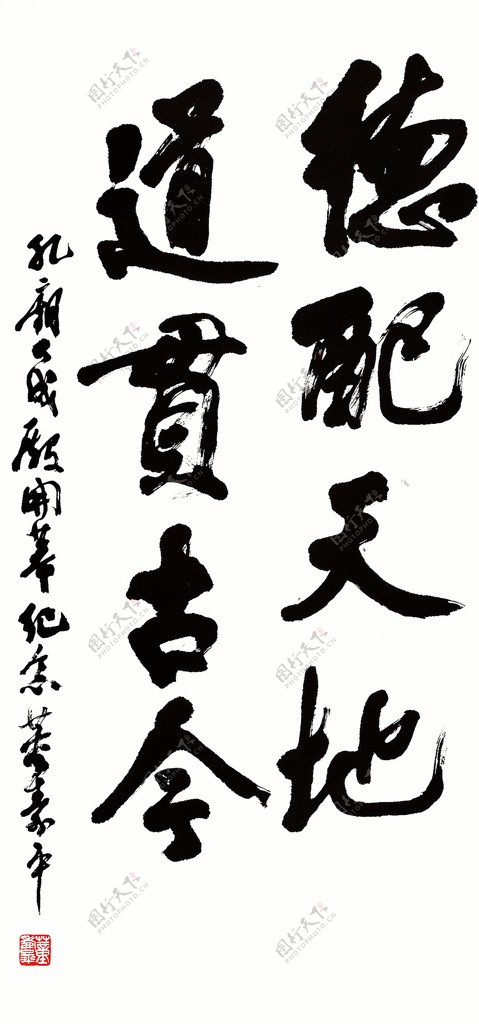 德配天地
道貫古今
孔廟大成殿開幕纪念董壽平
图行天下
PHOTOPHOTO.CN